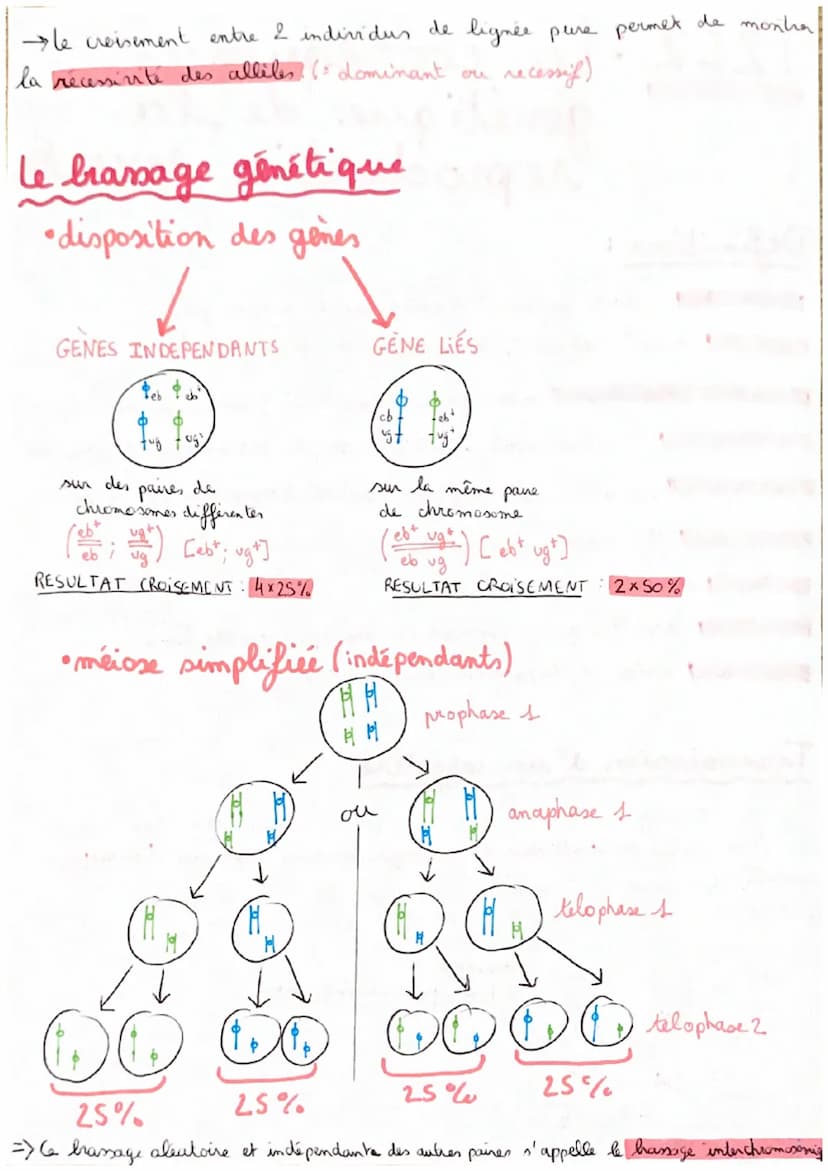 → Le croisement entre 2 individus de lignée pure permet de montrer
la récessivité des allèles. (= dominant ou recessif)
Le brassage génétique
• disposition des gènes
GÈNES INDÉPENDANTS
GÈNE LIÉS
eb eb+
ug ug+
eb eb+
ug ug+
sur des paires de
chromosomes différentes
(eb+/eb ; ug+/ug) [eb+; ug+]
RESULTAT CROISEMENT : 4x25%
sur la même paire
de chromosome
(eb+ ug+/eb ug) [eb+ ug+]
RESULTAT CROISEMENT : 2x50%
• méiose simplifiée (indépendants)
prophase 1
ou
anaphase 1
télophase 1
télophase 2
25% 25% 25% 25%
=> Ce brassage aléatoire et indépendante des autres paires s'appelle le brassage